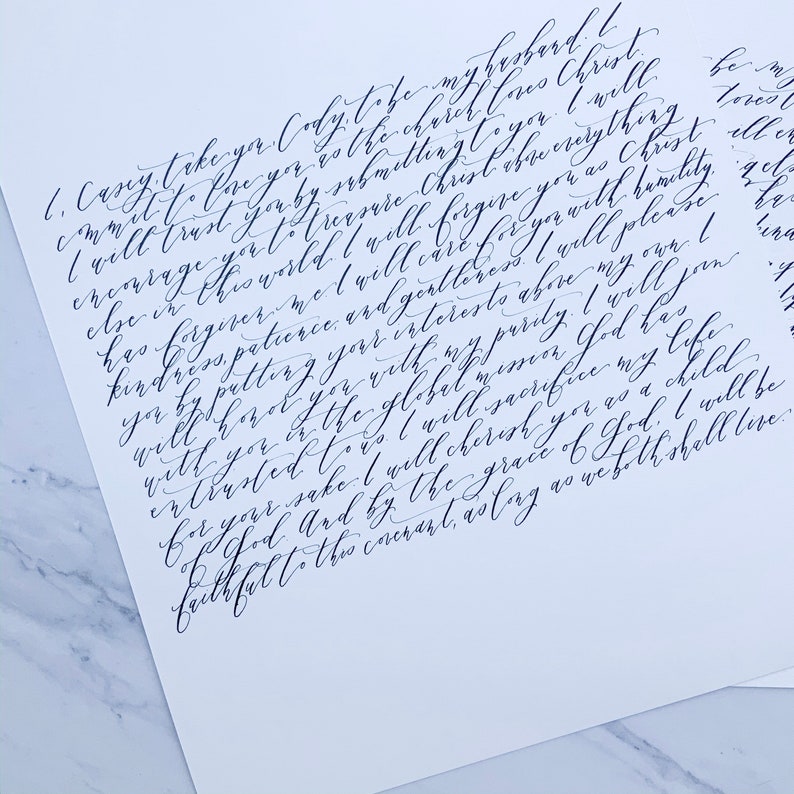 I, Casey, take you, Cody, to be my husband. I
commit to love you as the church loves Christ.
I will trust you by submitting to you. I will
encourage you to treasure Christ above everything
else in this world. I will forgive you as Christ
has forgiven me. I will care for you with humility,
kindness, patience, and gentleness. I will please
you by putting your interests above my own. I
will honor you with my purity. I will join
with you in the global mission God has
entrusted to us. I will sacrifice my life
for your sake. I will cherish you as a child
of God. And by the grace of God, I will be
faithful to this covenant, as long as we both shall live.
be my
loves
ill en
g els
ha